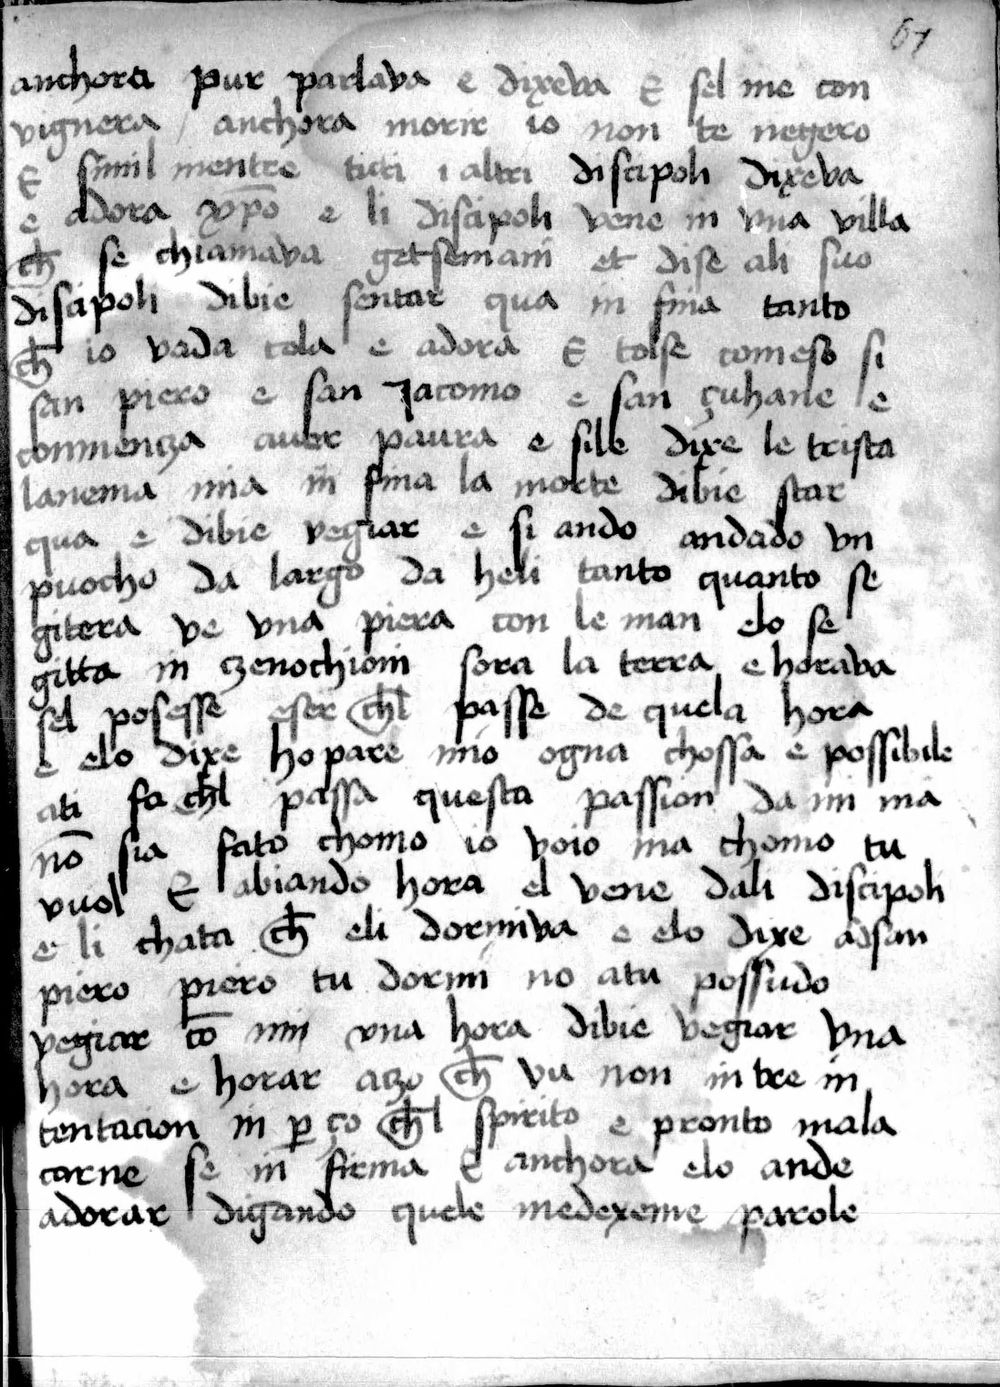 67
anchora pur parlava e dixeva E sel me con
vignera / anchora morir io non te negero
E simil mentre tuti i altri discipoli dixeva
e adora xp̄o e li discipoli vene in vna villa
ch̄ se chiamava getsemani et dise ali suo
discipoli dibie sentar qua in fina tanto
ch̄ io vada cola e adora E tolse comeso si
san piero e san Jacomo e san çuhane e
conmenza aver paura e sile dixe le trista
lanema mia in fina la morte dibie star
qua e dibie vegiar e si ando andado vn
puocho da largo da heli tanto quanto se
gitera ve vna piera con le man elo se
gitta in zenochioni sora la terra e horava
sel posesse eser ch̄l passe de quela hora
e elo dixe ho pare mio ogna chossa e possibile
ati fa ch̄l passa questa passion da mi ma
nō sia fato chomo io voio ma chomo tu
vuol E abiando hora el vene dali discipoli
e li chata ch̄ eli dormiva e elo dixe adsan
piero piero tu dormi no atu possudo
vegiar cō min vna hora dibie vegiar vna
hora e horar azo ch̄ vu non intre in
tentacion in p̱ ço ch̄l spirito e pronto mala
carne se in firma E anchora elo ande
adorar digando quele medexeme parole